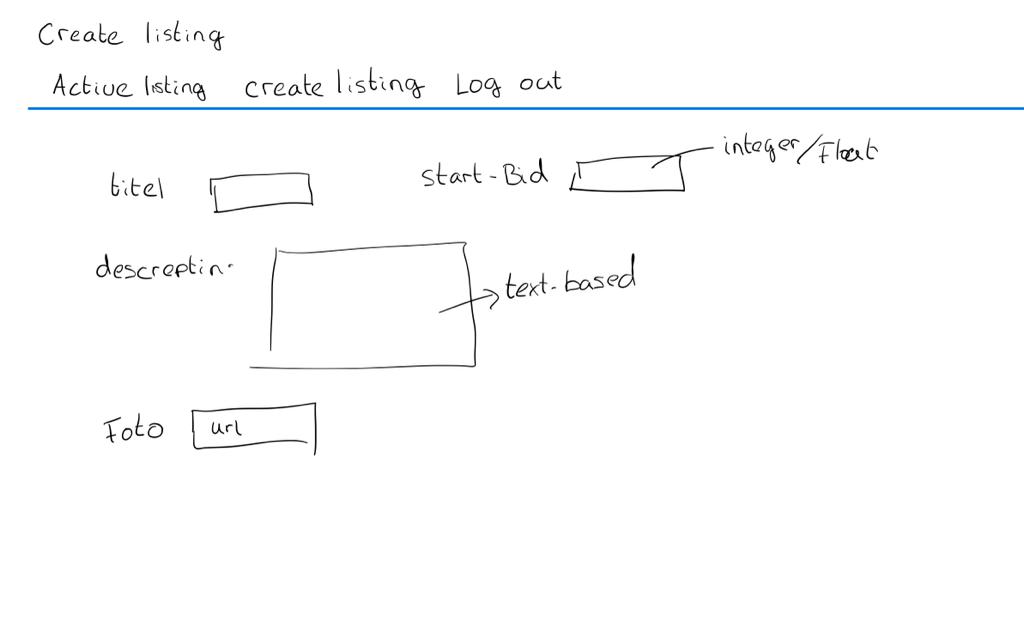 Create listing
Active listing create listing Log out
titel
start-Bid
integer/Float
descreptin.
text-based
Foto
url